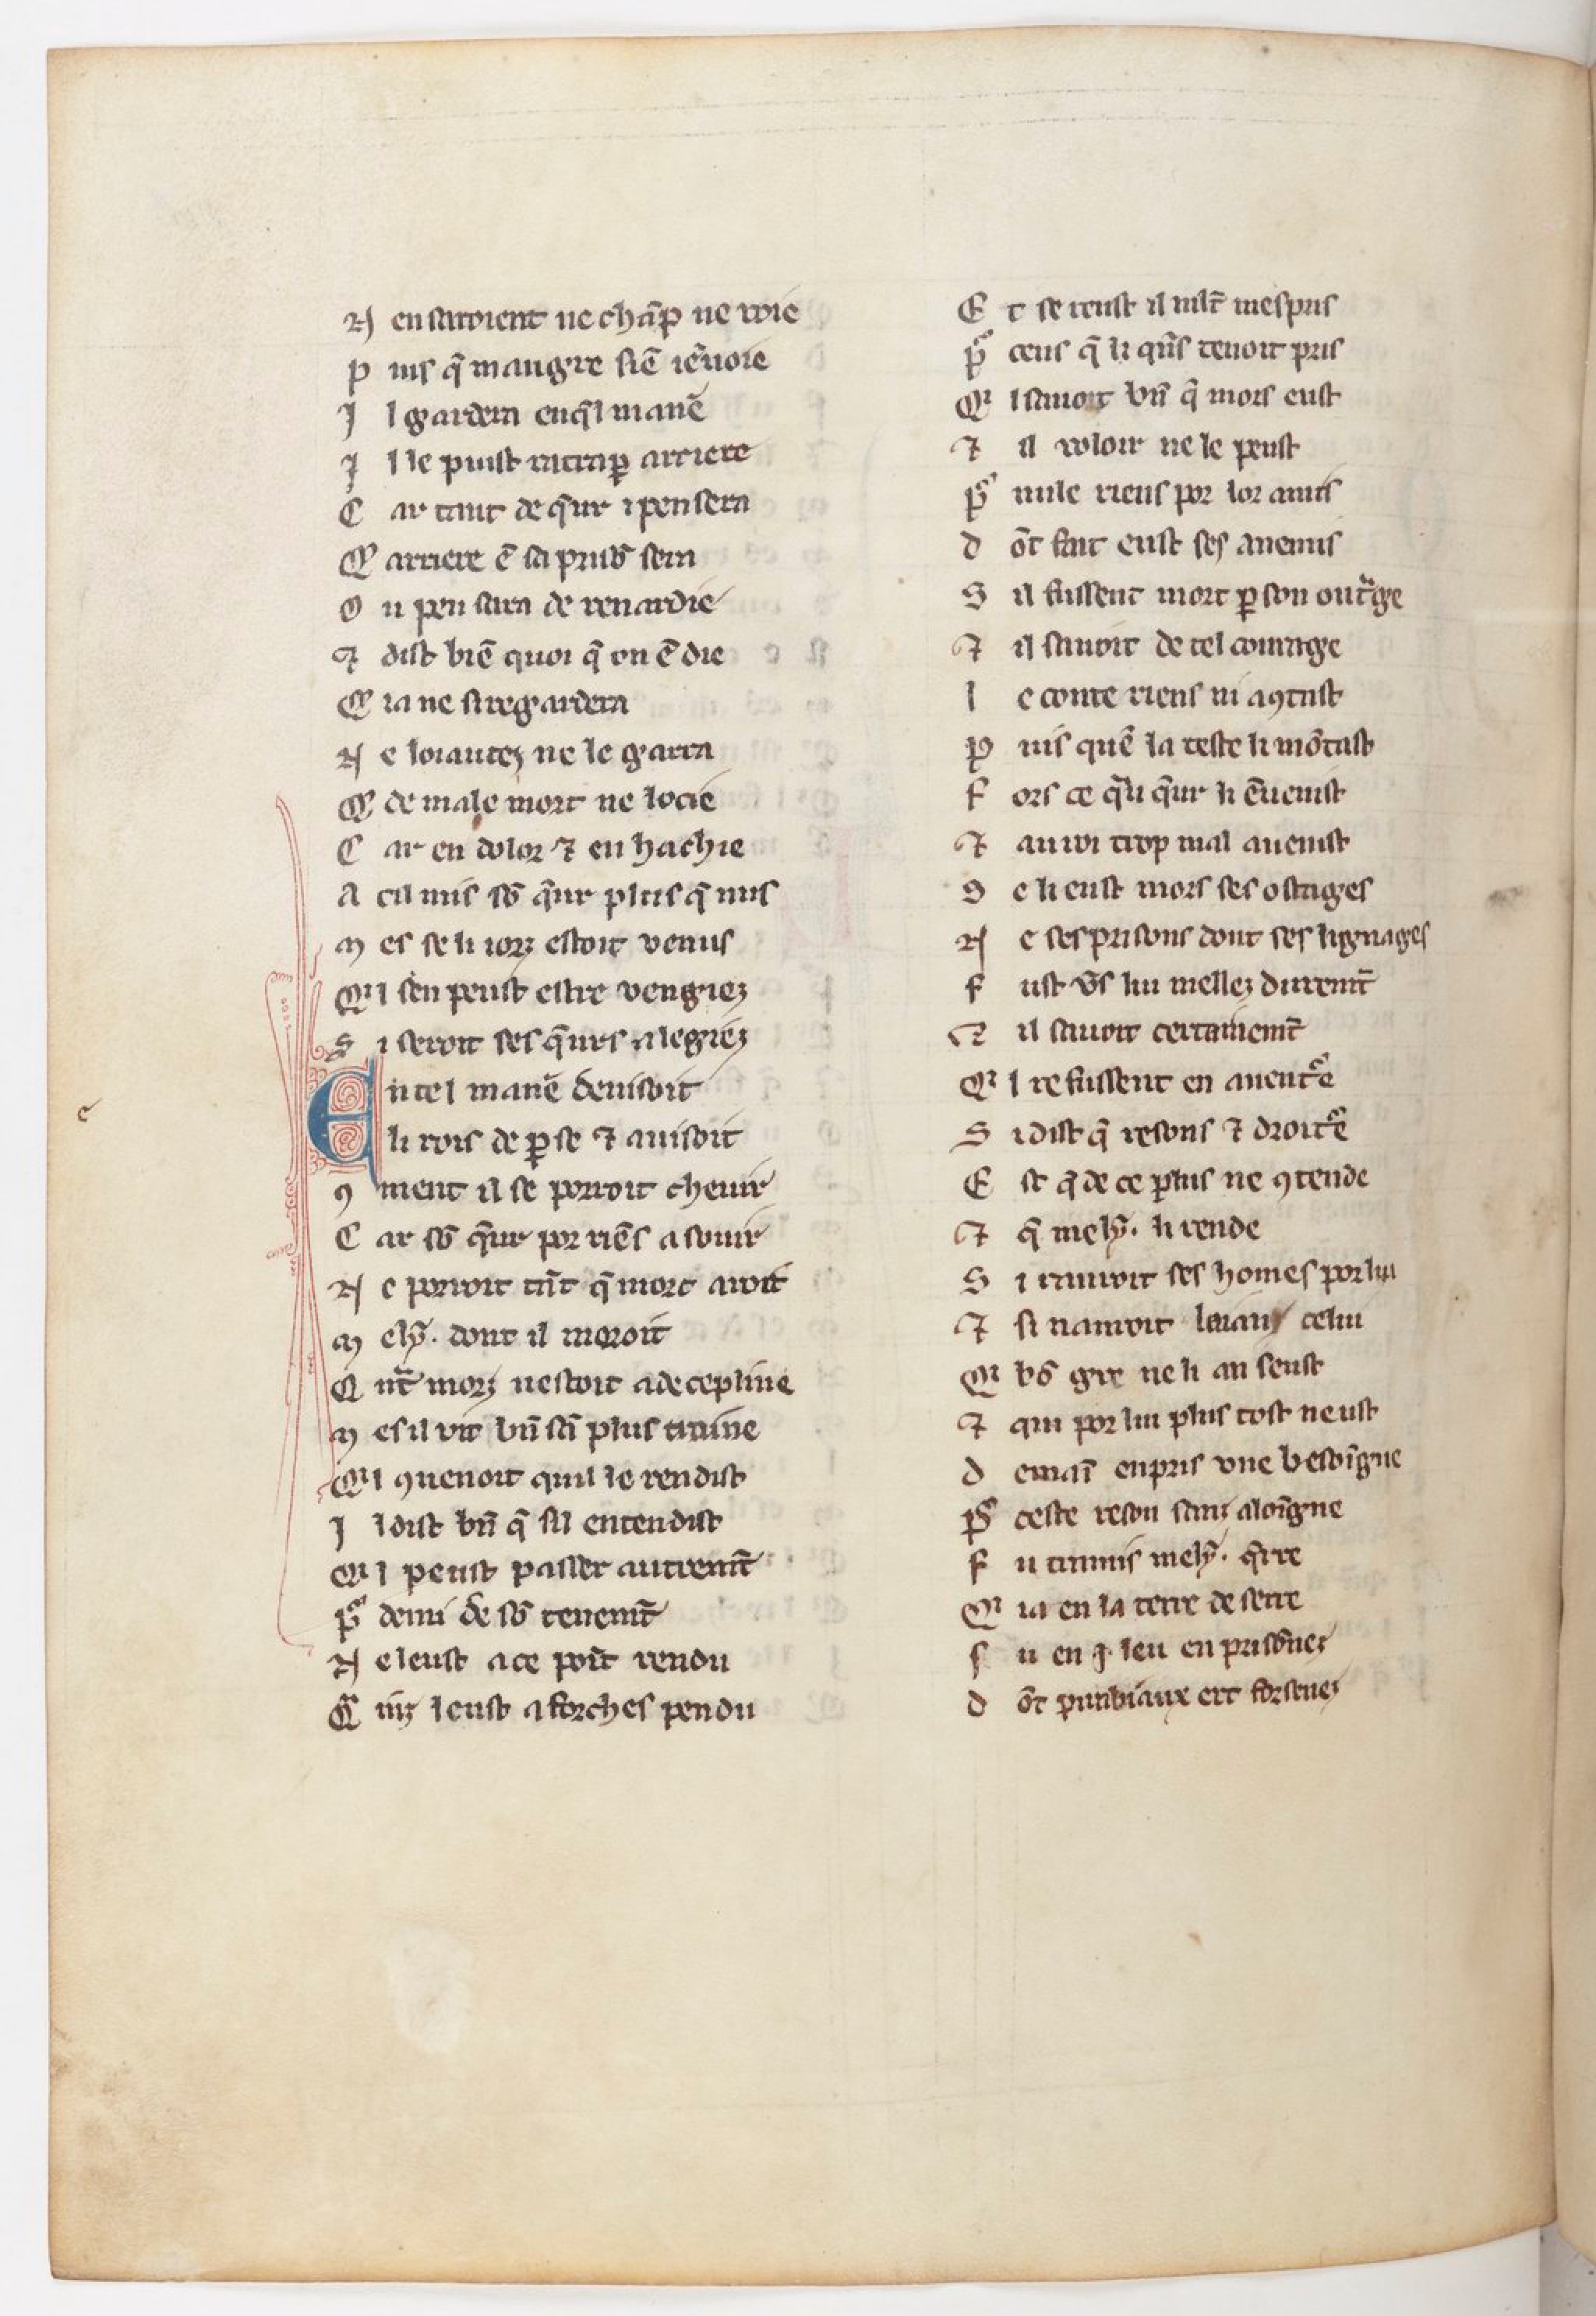 N en sauroient ne chāp ne voie
P uis q̄ maugre siē iēuoie
J l gardera en q̄l manē
J l le puist ratrap̲ arriere
C ar tant de q̄ur i pensera
Q̄ arriere ē sa prisō sera
O u peu saura de renardie
⁊ dist biē quoi q̄ on ē die
Q̄ ia ne si regardera
N e loiautez ne le garra
Q̄ de male mort ne locie
C ar en dolor ⁊ en hachie
A cil mis sō q̄ur plus q̄ nus
M es se li iorz estoit venus
Qⁱl sen peust estre vengiez
S i seroit ses q̄urs alegiez
En tel manē deuisoit
li rois de p̲se ⁊ auisoit
ꝯ ment il se porroit cheuir
C ar sō q̄ur por riēs asouir
N e porroit tāt q̄ mort auoit
M ely̾. dont il moroit
Q̄ nt̄ morz nestoit a decepline
M es il vit bn̄ sā plus traine
Qⁱl ꝯuenoit quil le rendist
J l dist bn̄ q̄ sil entendist
Qⁱl peust passer autremt̄
pͬ demi de sō tenemt̄
N e leust a ce poīt rendu
Q̄ miz leust a forches pendu
E t se teust il mlt̄ mespris
pͬ ceus q̄ li qn̄s tenoit pris
Qⁱ l sauoit bn̄ q̄ mors eust
⁊ il voloir ne le peust
pͬ nule riens por lor amis
d ōt fait eust ses anemis
S il fussent mort p̲ son outͣge
⁊ il sauoit de tel courage
l e conte riens ni aꝯtast
P uis quē la teste li mōtast
F ors ce q̄u q̄ur li ēuenist
⁊ au roi trop mal auenist
S e li eust mors ses ostages
N e ses prisons dont ses lignages
F ust v̾s lui mellez duremt̄
⁊ il sauoit certainemt̄
Qⁱ l refussent en auentͬe
S i dist q̄ resons ⁊ droitͬe
E st q̄ de ce plus ne ꝯtende
⁊ q̄ mely̾. li rende
S i rauroit ses homes por lui
⁊ si nauroit celui
Qⁱ bō gre ne li an seust
⁊ qui por lui plus tost neust
d emaī enpris vne besoīgne
pͬ ceste reson sanz aloīgne
F u tramis mely̾. q̄rre
Qⁱ ia en la terre de serre
f u en .j. leu en prisōnez
d ōt punbiaux ert forsenez